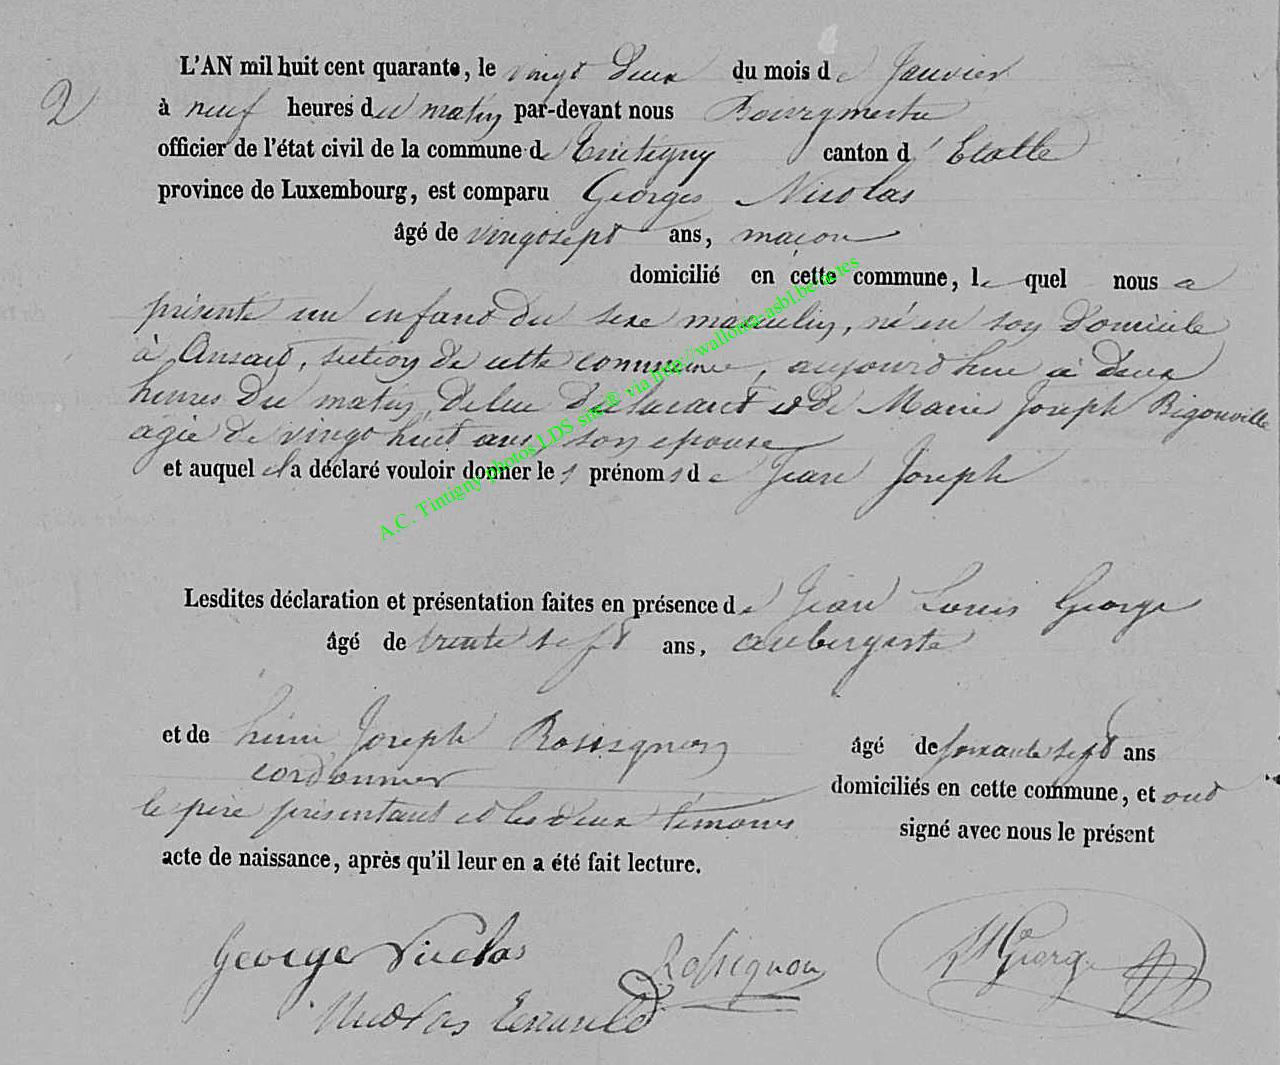 L'AN mil huit cent quarante, le vingt deux du mois de Janvier
2
à neuf heures du matin par-devant nous Bourgmestre
officier de l'état civil de la commune de Tintigny canton d'Etalle
province de Luxembourg, est comparu Georges Nicolas
âgé de vingt sept ans, maçon
domicilié en cette commune, le quel nous a
présenté un enfant du sexe masculin, né en son Domicile
à Ansart, section de cette commune, aujourd'hui à deux
heures du matin, de lui Déclarant et de Marie Joseph Rigouville
agée de vingt huit ans, son epouse
et auquel il a déclaré vouloir donner les prénoms de Jean Joseph
A.C. Tintigny photos LDS site® via http://wallonia-asbl.be/actes
Lesdites déclaration et présentation faites en présence de Jean Louis George
âgé de trente sept ans, aubergiste
et de henri Joseph Rossignon âgé de soixante sept ans
cordonnier domiciliés en cette commune, et ont
le père présentant et les deux témoins signé avec nous le présent
acte de naissance, après qu'il leur en a été fait lecture.
George Nicolas Rossignon George
Nicolas